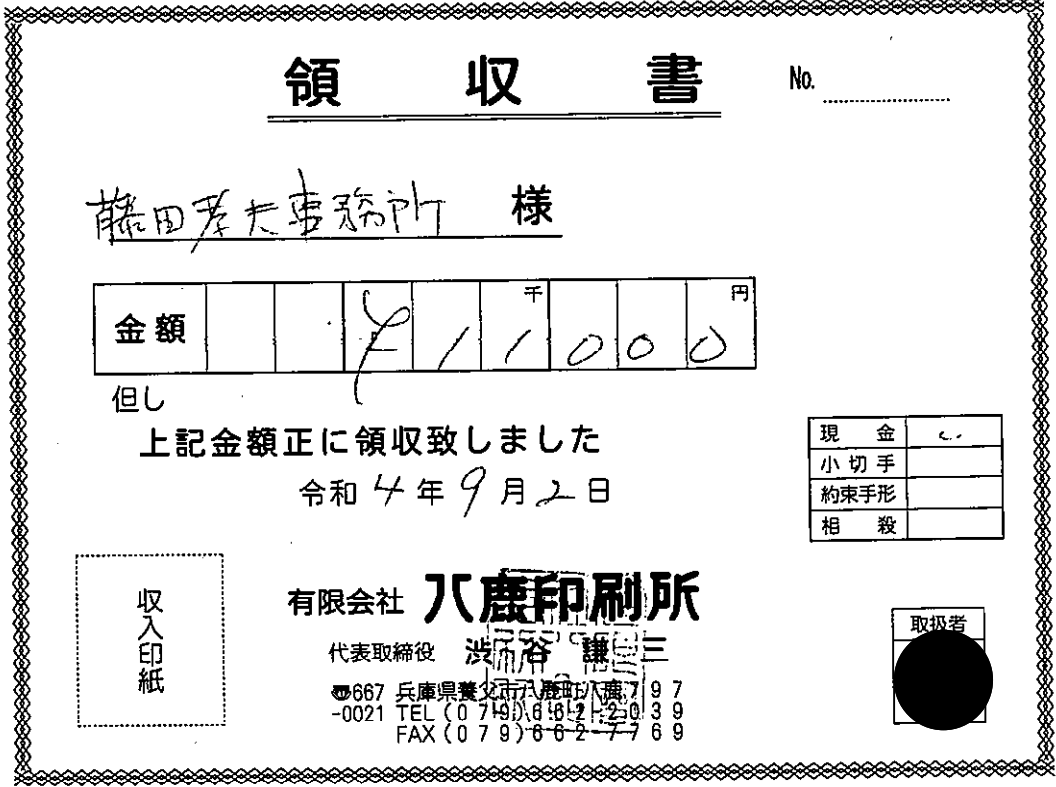 領収書 No.
藤田孝夫事務所 様
金額 千 円 ¥11000
但し
上記金額正に領収致しました
令和4年9月2日
現金
小切手
約束手形
相殺
収入印紙
有限会社 八鹿印刷所
代表取締役 渋谷謙三
〠667-0021 兵庫県養父市八鹿町八鹿797
TEL(079)662-2039
FAX(079)662-7769
取扱者